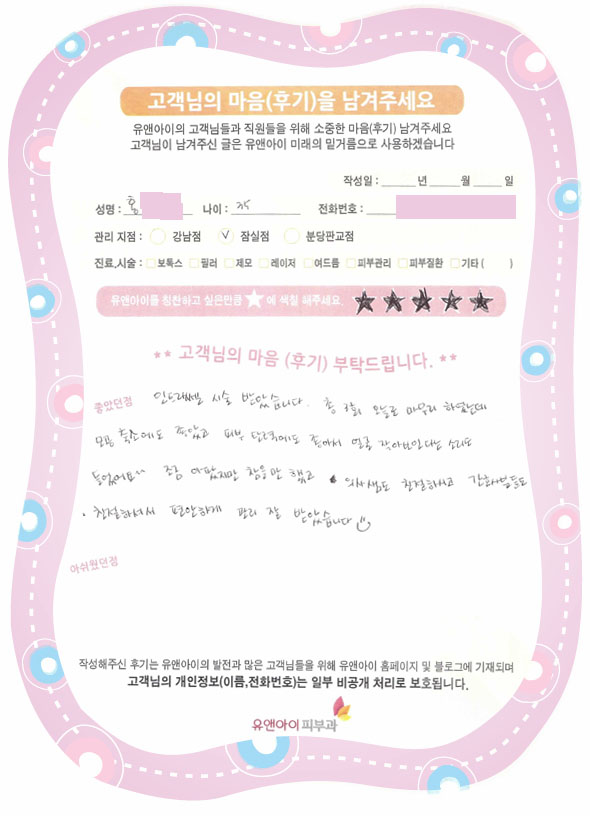 고객님의 마음(후기)을 남겨주세요
유앤아이의 고객님들과 직원들을 위해 소중한 마음(후기) 남겨주세요
고객님이 남겨주신 글은 유앤아이 미래의 밑거름으로 사용하겠습니다
작성일 : 년 월 일
성명 : 홍 나이 : 전화번호 :
관리 지점 : 강남점 ✓ 잠실점 분당판교점
진료,시술 : □보톡스 □필러 □제모 □레이저 □여드름 □피부관리 □피부질환 □기타 ( )
유앤아이를 칭찬하고 싶은만큼 ★ 에 색칠 해주세요. ★★★★★
** 고객님의 마음 (후기) 부탁드립니다. **
좋았던점 인트라셀 시술 받았습니다. 총 3회, 오늘로 마무리 하였는데
모공 축소에도 좋았고 피부 탄력에도 좋아서 얼굴 작아보인다는 소리도
들었어요~ 조금 아팠지만 참을만 했고 의사쌤도 친절하시고 간호사분들도
친절하셔서 편안하게 관리 잘 받았습니다
아쉬웠던점
작성해주신 후기는 유앤아이의 발전과 많은 고객님들을 위해 유앤아이 홈페이지 및 블로그에 기재되며
고객님의 개인정보(이름,전화번호)는 일부 비공개 처리로 보호됩니다.
유앤아이피부과